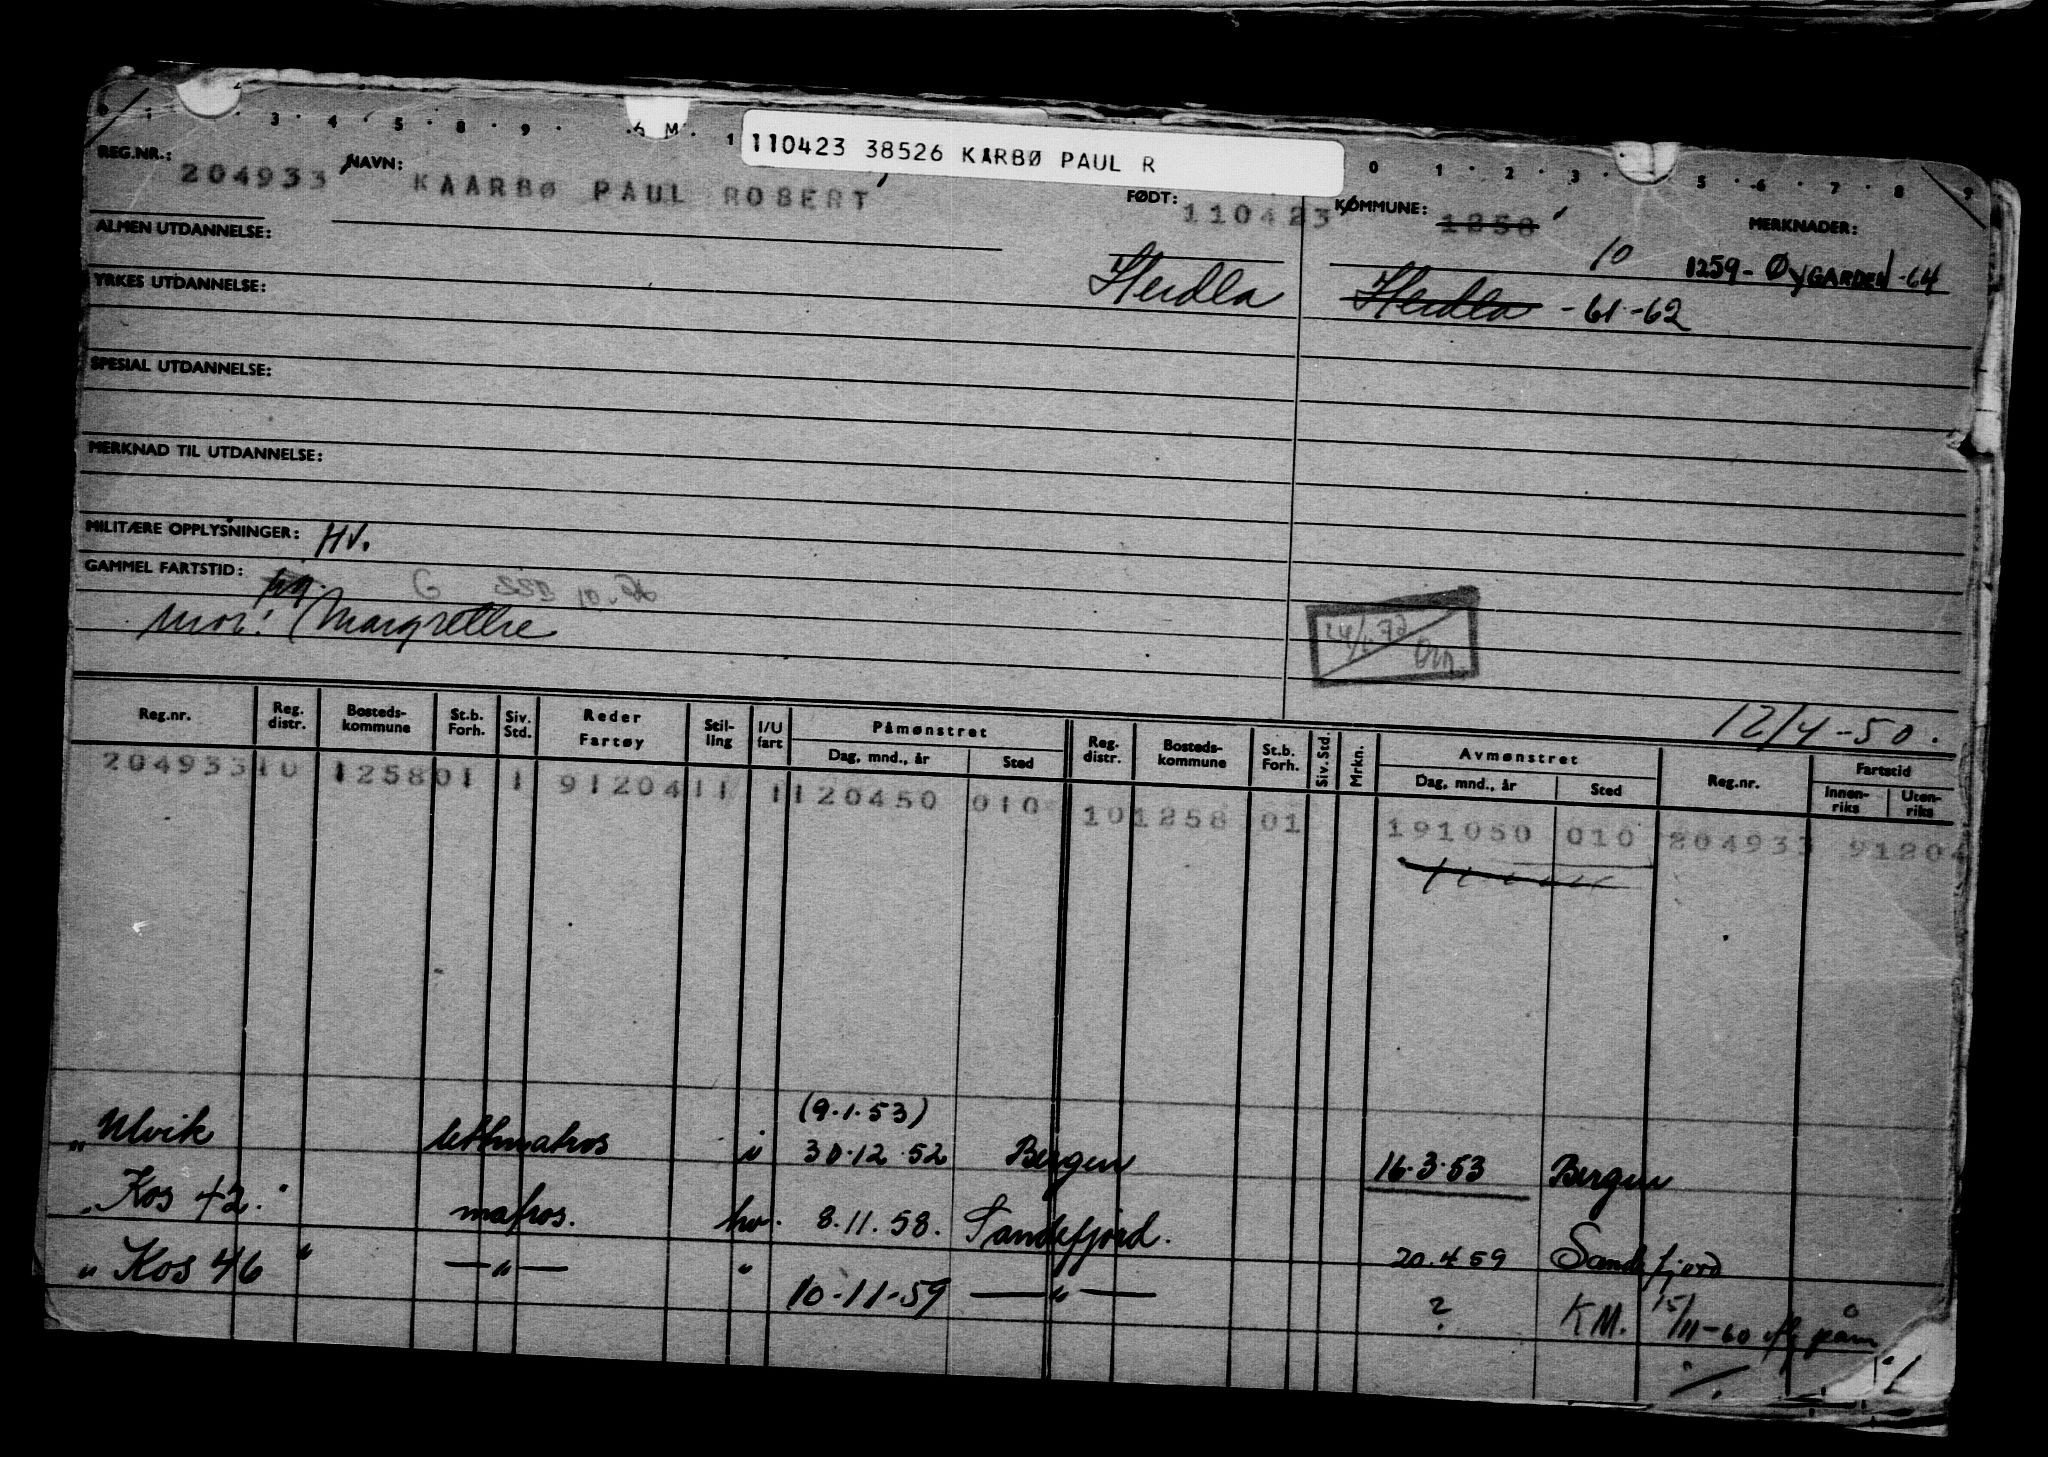 110423 38526 KARBØ PAUL R
0 1 3 4 5 8 9 6 M 1 0 1 2 3 5 6 7 8 9
REG.NR.: 204933 NAVN: KAARBØ PAUL ROBERT FØDT: 110423 KOMMUNE: 1258 MERKNADER:
ALMEN UTDANNELSE:
10 1259 - ØYGARDEN -64
YRKES UTDANNELSE: Herdla Herdla -61-62
SPESIAL UTDANNELSE:
MERKNAD TIL UTDANNELSE:
MILITÆRE OPPLYSNINGER: HV.
GAMMEL FARTSTID:
mor: Margrethe
12/4-50.
Reg.nr. Reg. distr. Bosteds-kommune St.b. Forh. Siv. Std. Reder Fartøy Stil-ling I/U fart Påmønstret Dag, mnd., år Sted Reg. distr. Bosteds-kommune St.b. Forh. Siv. Std. Mrkn. Avmønstret Dag, mnd., år Sted Reg.nr. Fartstid Innen-riks Uten-riks
204933 10 1258 01 1 91204 11 1 120450 010 10 1258 01 191050 010 204933 91204
(9.1.53)
" Ulvik lettmatros i 30.12.52 Bergen 16.3.53 Bergen
" Kos 42. " matros. hv. 8.11.58. Sandefjord. 20.4.59 Sandefjord
" Kos 46 " —"— " 10-11-59 —"— ? KM. 15/11-60 påm